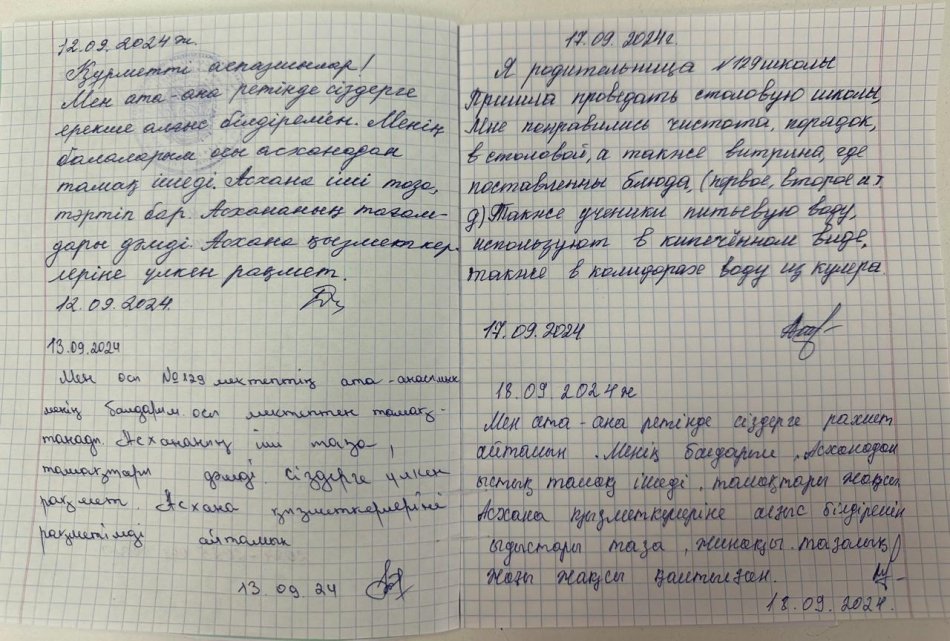 12.09.2024 ж.
Құрметті аспазшылар!
Мен ата ана ретінде сіздерге
ерекше алғыс білдіремен. Менің
балаларым осы асханадан
тамақ ішеді. Асхана іші тоза,
тәртіп бар. Асхананың тағам-
дары дәмді. Асхана қызметкер-
леріне үлкен рақмет.
12.09.2024.
13.09.2024
Мен осы №129 мектептің ата-анасымын
менің балдарым осы мектептен тамақ-
танады. Асхананың іші таза,
тамақтары дәмді. Сіздерге үлкен
рақмет. Асхана қызметкерлеріне
рақметімді айтамын
13.09.24
17.09.2024г.
Я родительница №129 школы
Пришла проведать столовую школы,
Мне понравились чистота, порядок,
в столовой, а также витрина, где
поставленны блюда, (первое, второе и т
д) Также ученики питьевую воду,
используют в кипечённом виде,
также в колидорах воду из кулера.
17.09.2024
18.09.2024ж
Мен ата-ана ретінде сіздерге рахмет
айтамын. Менің балдарым, Асханадан
ыстық тамақ ішеді, тамақтары жақсы,
Асхана алғыс білдіремін
ыдыстары таза, жинақы. тазалық
жағы жақсы
18.09.2024.